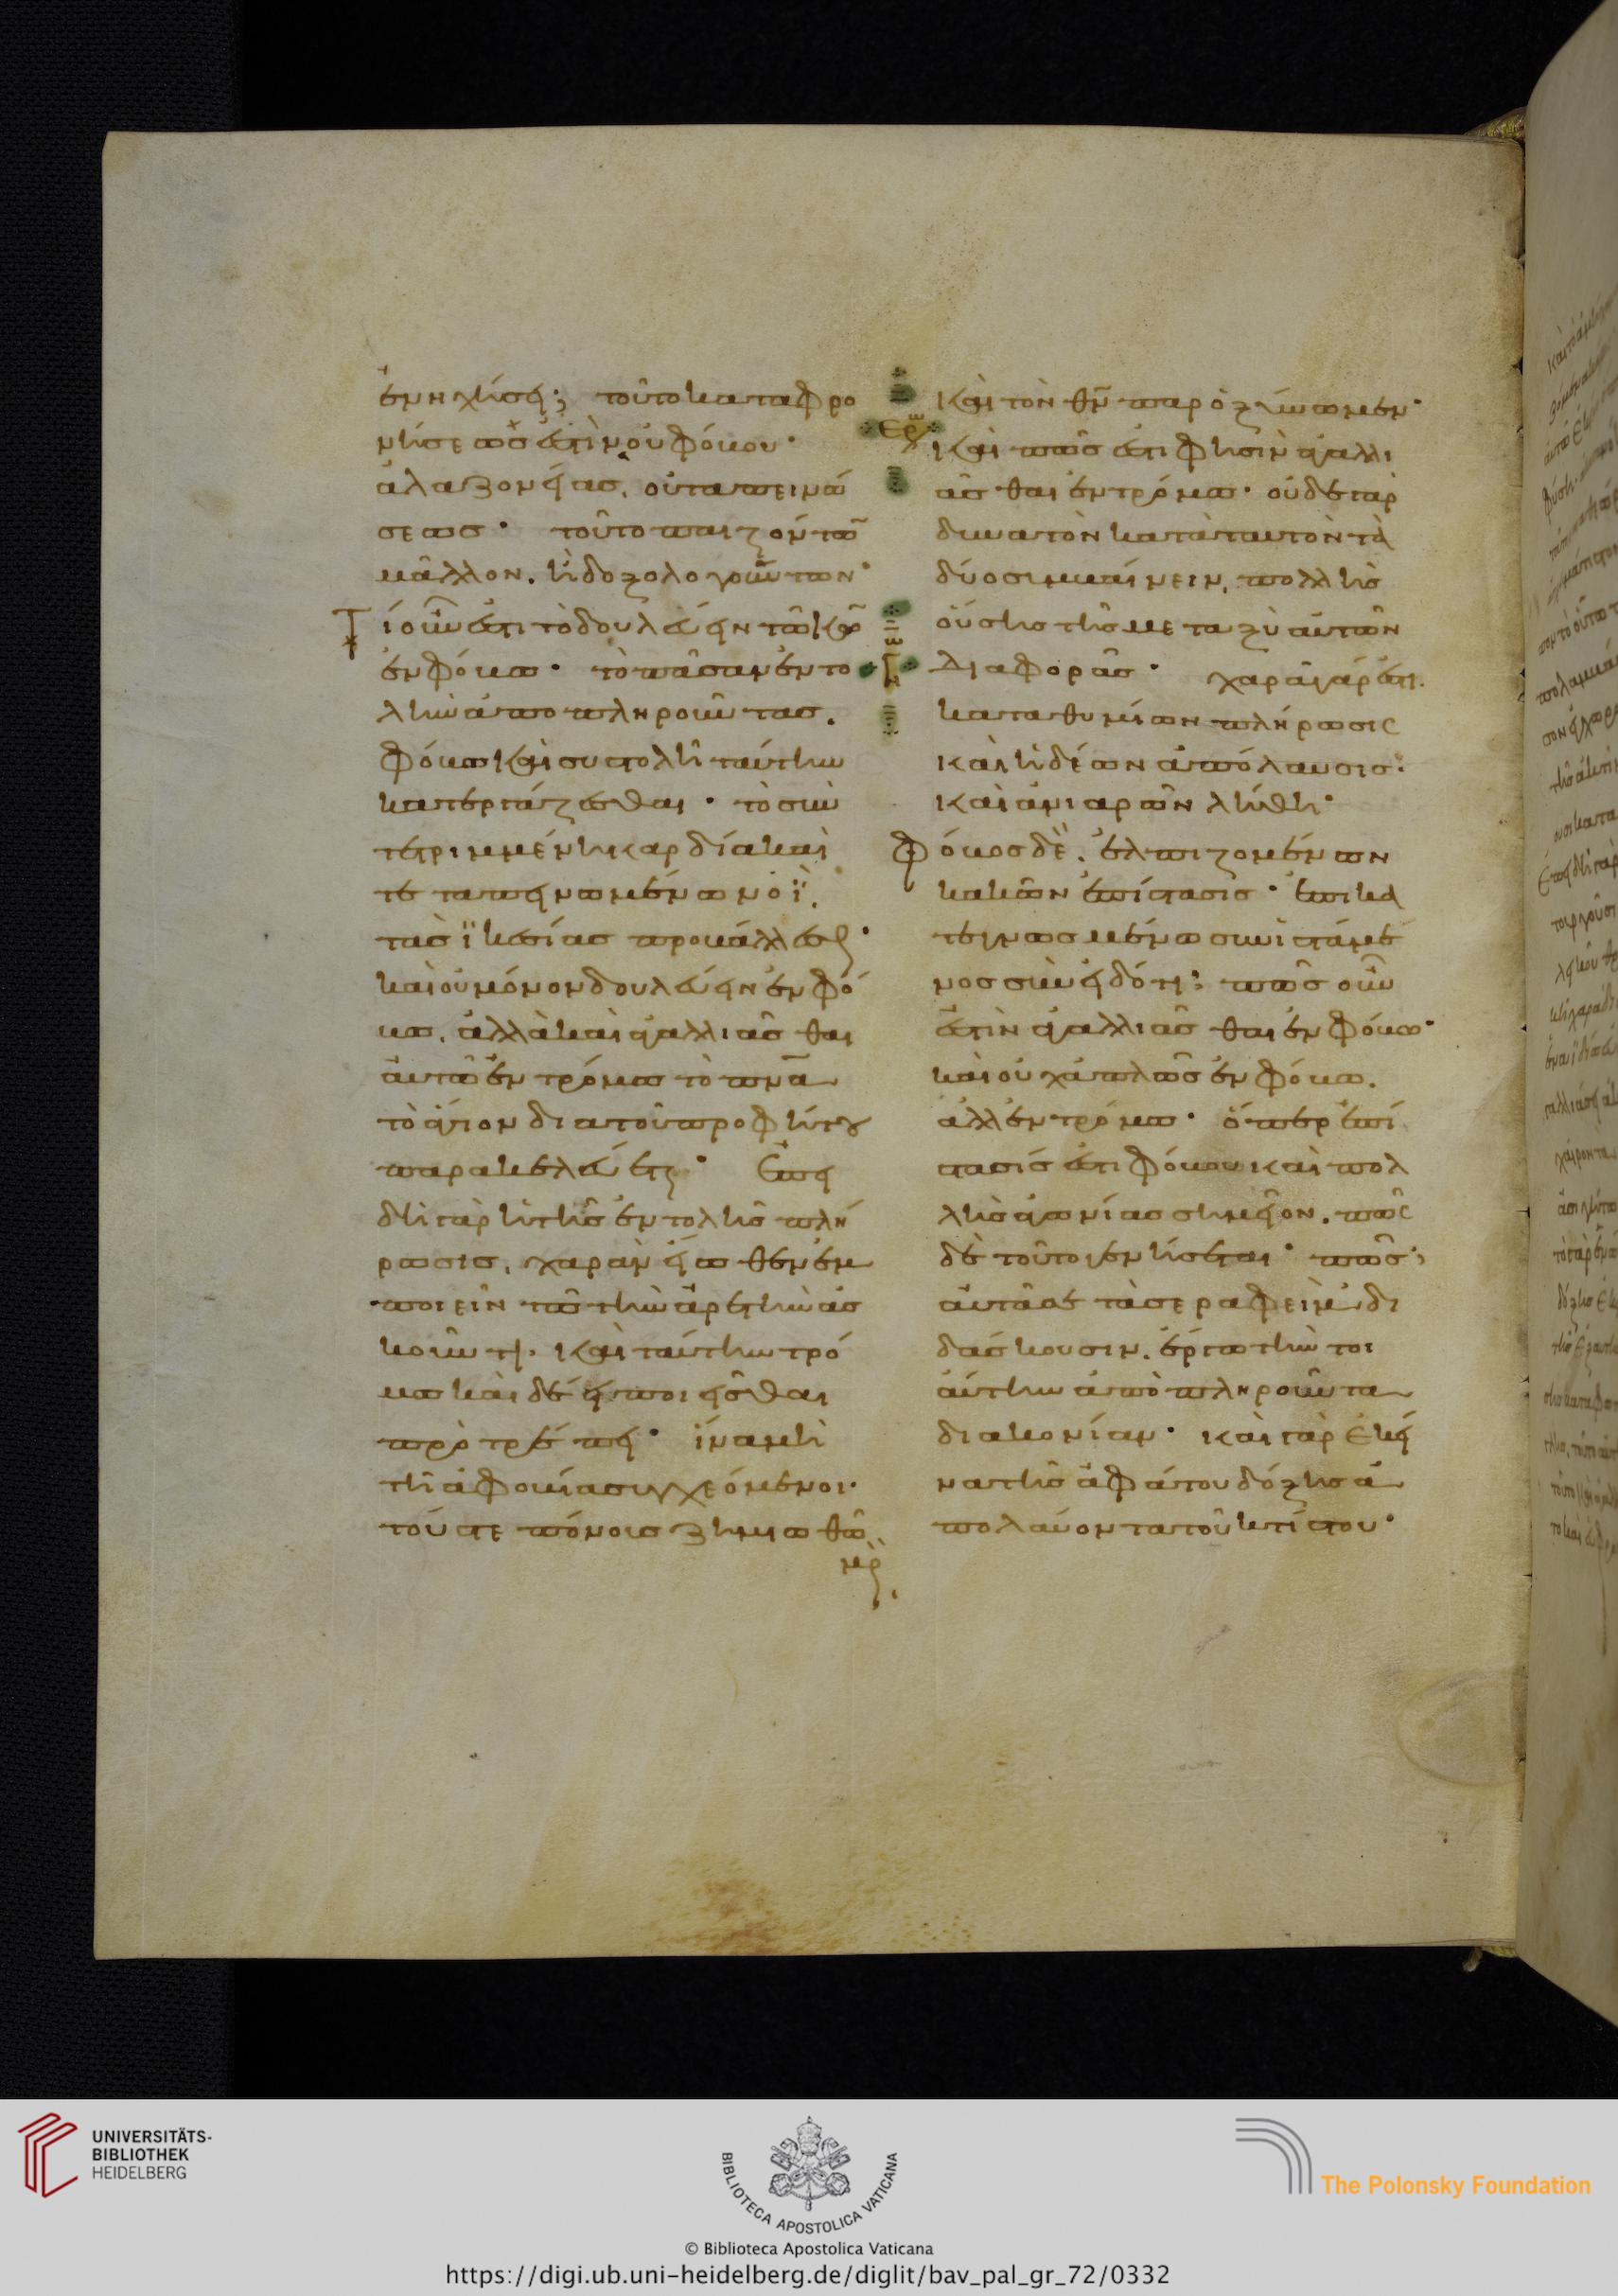 ἐν ἠχήσει; τοῦτο καταφρο
νήσεώς ἐστὶν οὐ φόβου·
ἀλαζονείας, οὐ ταπεινώ
σεως· τοῦτο παιζόντων
μᾶλλον, ἢ δοξολογούντων·
Τί οὖν ἐστι τὸ δουλεύειν τῶ κω
ἐν φόβω· τὸ πᾶσαν ἐντο
λὴν ἀποπληροῦντας,
φόβω καὶ συστολῆ ταύτην
κατεργάζεσθαι· τὸ συν
τετριμμένη καρδία καὶ
τεταπεινωμένω νοῒ,
τὰς ἱκεσίας προβάλλεσθαι·
καὶ οὐ μόνον δουλεύειν ἐν φό
βω, ἀλλὰ καὶ ἀγαλλιᾶσθαι
αὐτῶ ἐν τρόμω τὸ πνα
τὸ ἅγιον διὰ τοῦ προφήτου
παρακελεύεται· Ἐπει
δὴ γὰρ ἡ τῆς ἐντολῆς πλή
ρωσις, χαρὰν εἴωθεν ἐμ
ποιεῖν τῶ τὴν ἀρετὴν ἀσ
κοῦντι· καὶ ταύτην τρό
μω καὶ δέει ποιεῖσθαι
προτρέπει· ἵνα μὴ
τῆ ἀφοβία συγχεόμενοι·
τούς τε πόνοις ζημιωθῶ
μεν,
καὶ τὸν θν παροξύνωμεν·
καὶ πῶς ἐστι φησὶν ἀγαλλι
ᾶσθαι ἐν τρόμω· οὐδὲ γὰρ
δυνατὸν κατὰ ταυτὸν τὰ
δύο συμβαίνειν, πολλῆς
οὔσης τῆς μεταξὺ αὐτῶν
διαφορᾶς· χαρὰ γάρ ἐστι
καταθυμίων πλήρωσις
καὶ ἡδέων ἀπόλαυσις·
καὶ ἀνιαρῶν λήθη·
Φόβος δὲ, ἐλπιζομένων
κακῶν ἐπίστασις· ἐπικα
τεγνωσμένω συνιστάμε
νος συνειδότι; πῶς οὖν
ἐστὶν ἀγαλλιᾶσθαι ἐν φόβω·
καὶ οὐχ ἁπλῶς ἐν φόβω,
ἀλλ' ἐν τρόμω· ὅπερ ἐπί
τασίς ἐστι φόβου καὶ πολ
λῆς ἀγωνίας σημεῖον, πῶς
δὲ τοῦτο γενήσεται· πῶς;
αὐτά σε τὰ σεραφεὶμ δι
δάσκουσιν, ἔργω τὴν τοι
αύτην ἀποπληροῦντα
διακονίαν· καὶ γὰρ ἐκεῖ
να τῆς ἀφάτου δόξης ἀ
πολαύοντα τοῦ κτίστου·
UNIVERSITÄTS-
BIBLIOTHEK
HEIDELBERG
BIBLIOTECA APOSTOLICA VATICANA
© Biblioteca Apostolica Vaticana
The Polonsky Foundation
https://digi.ub.uni-heidelberg.de/diglit/bav_pal_gr_72/0332